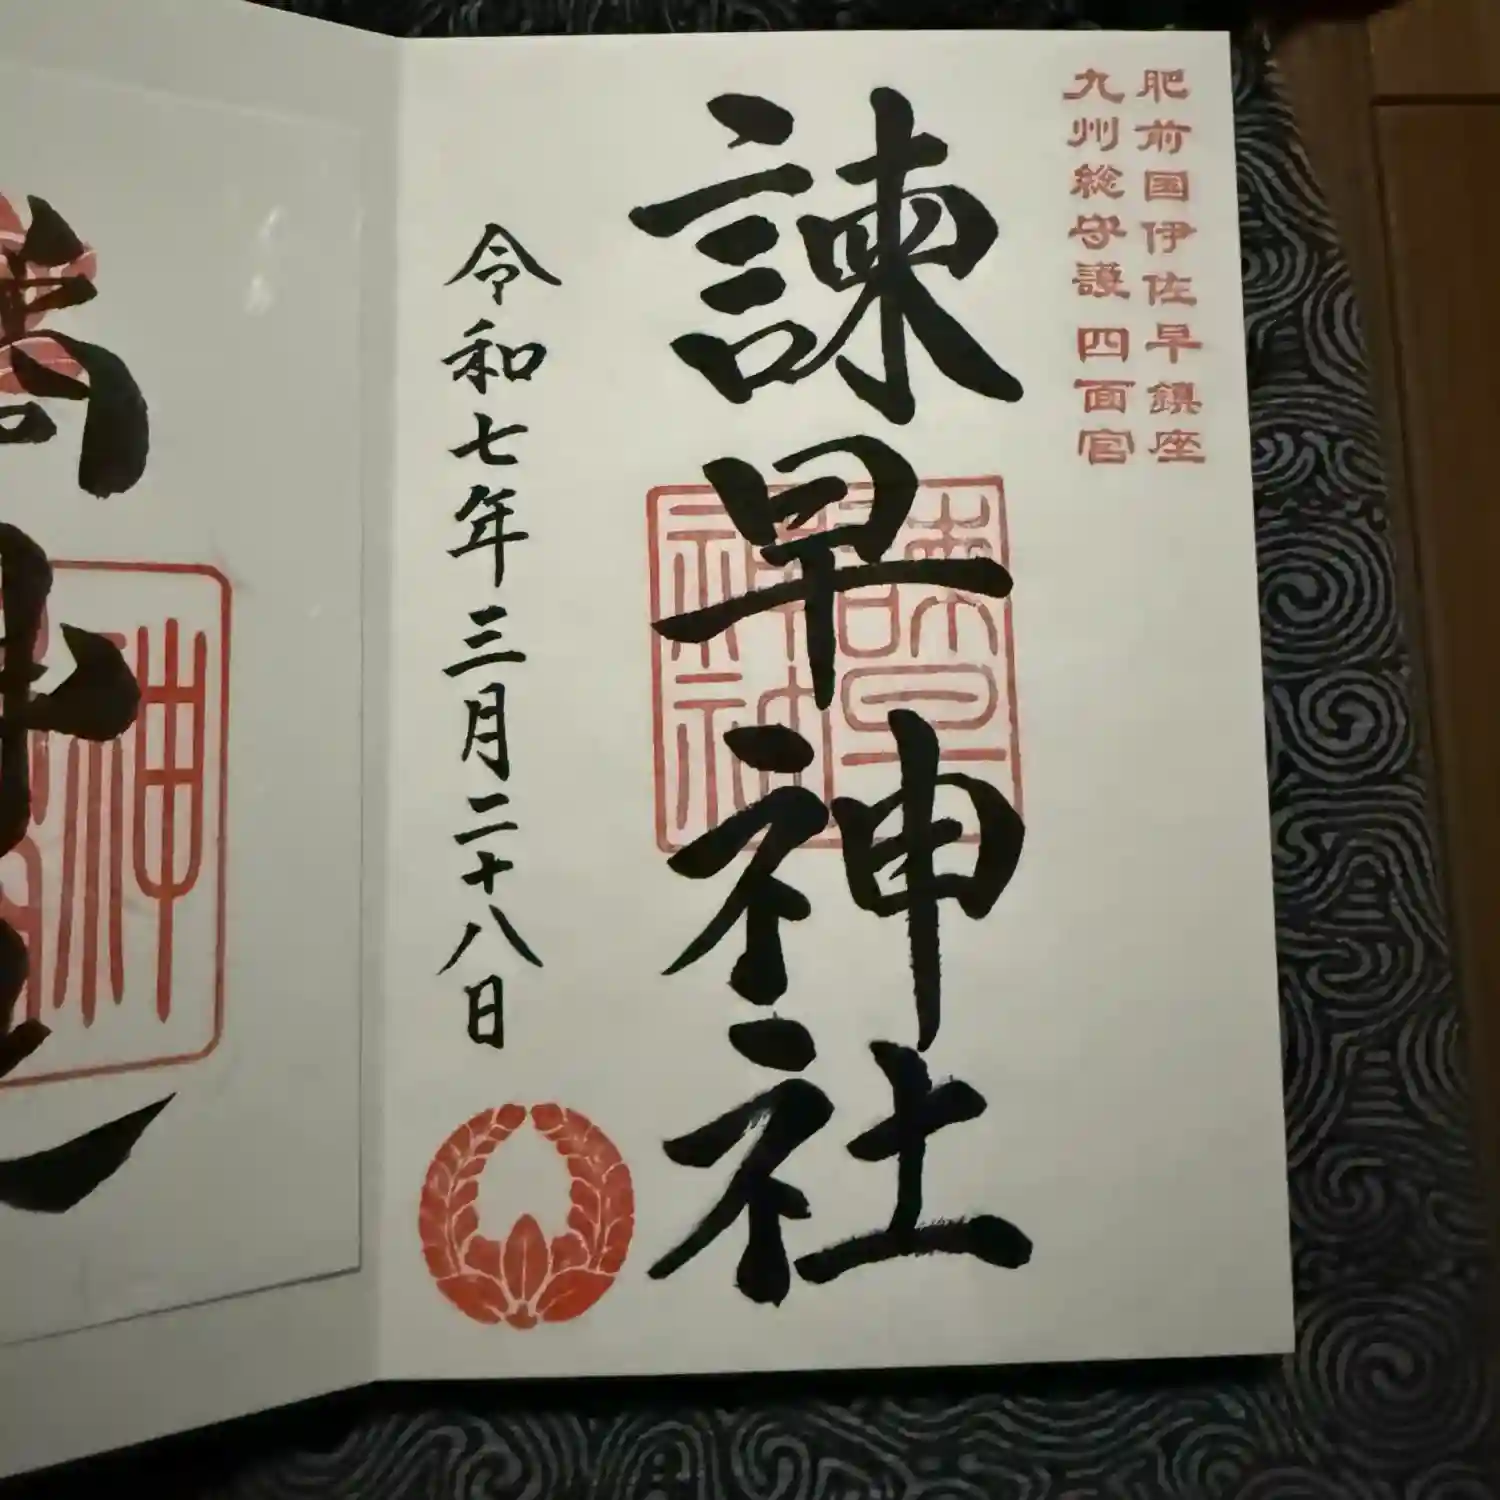 肥前国伊佐早鎮座
九州総守護四面宮
諫早神社
諫早神社
令和七年三月二十八日
神